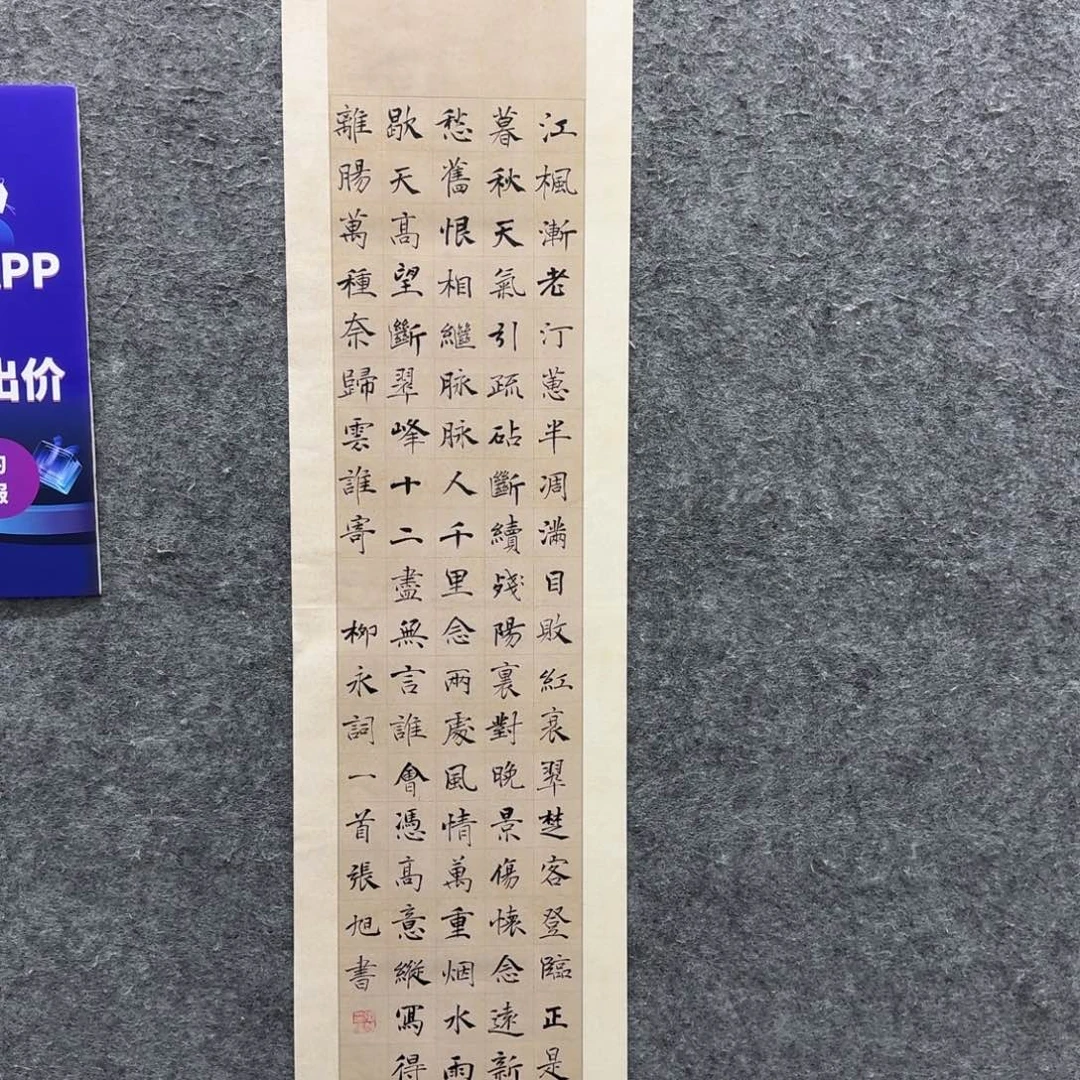 江楓漸老汀蕙半凋滿目敗紅衰翠楚客登臨正是
暮秋天氣引疏砧斷續殘陽裏對晚景傷懷念遠新
愁舊恨相繼脉脉人千里念兩處風情萬重烟水雨
歇天高望斷翠峰十二盡無言誰會憑高意縱寫得
離腸萬種奈歸雲誰寄
柳永詞一首張旭書
PP
出价